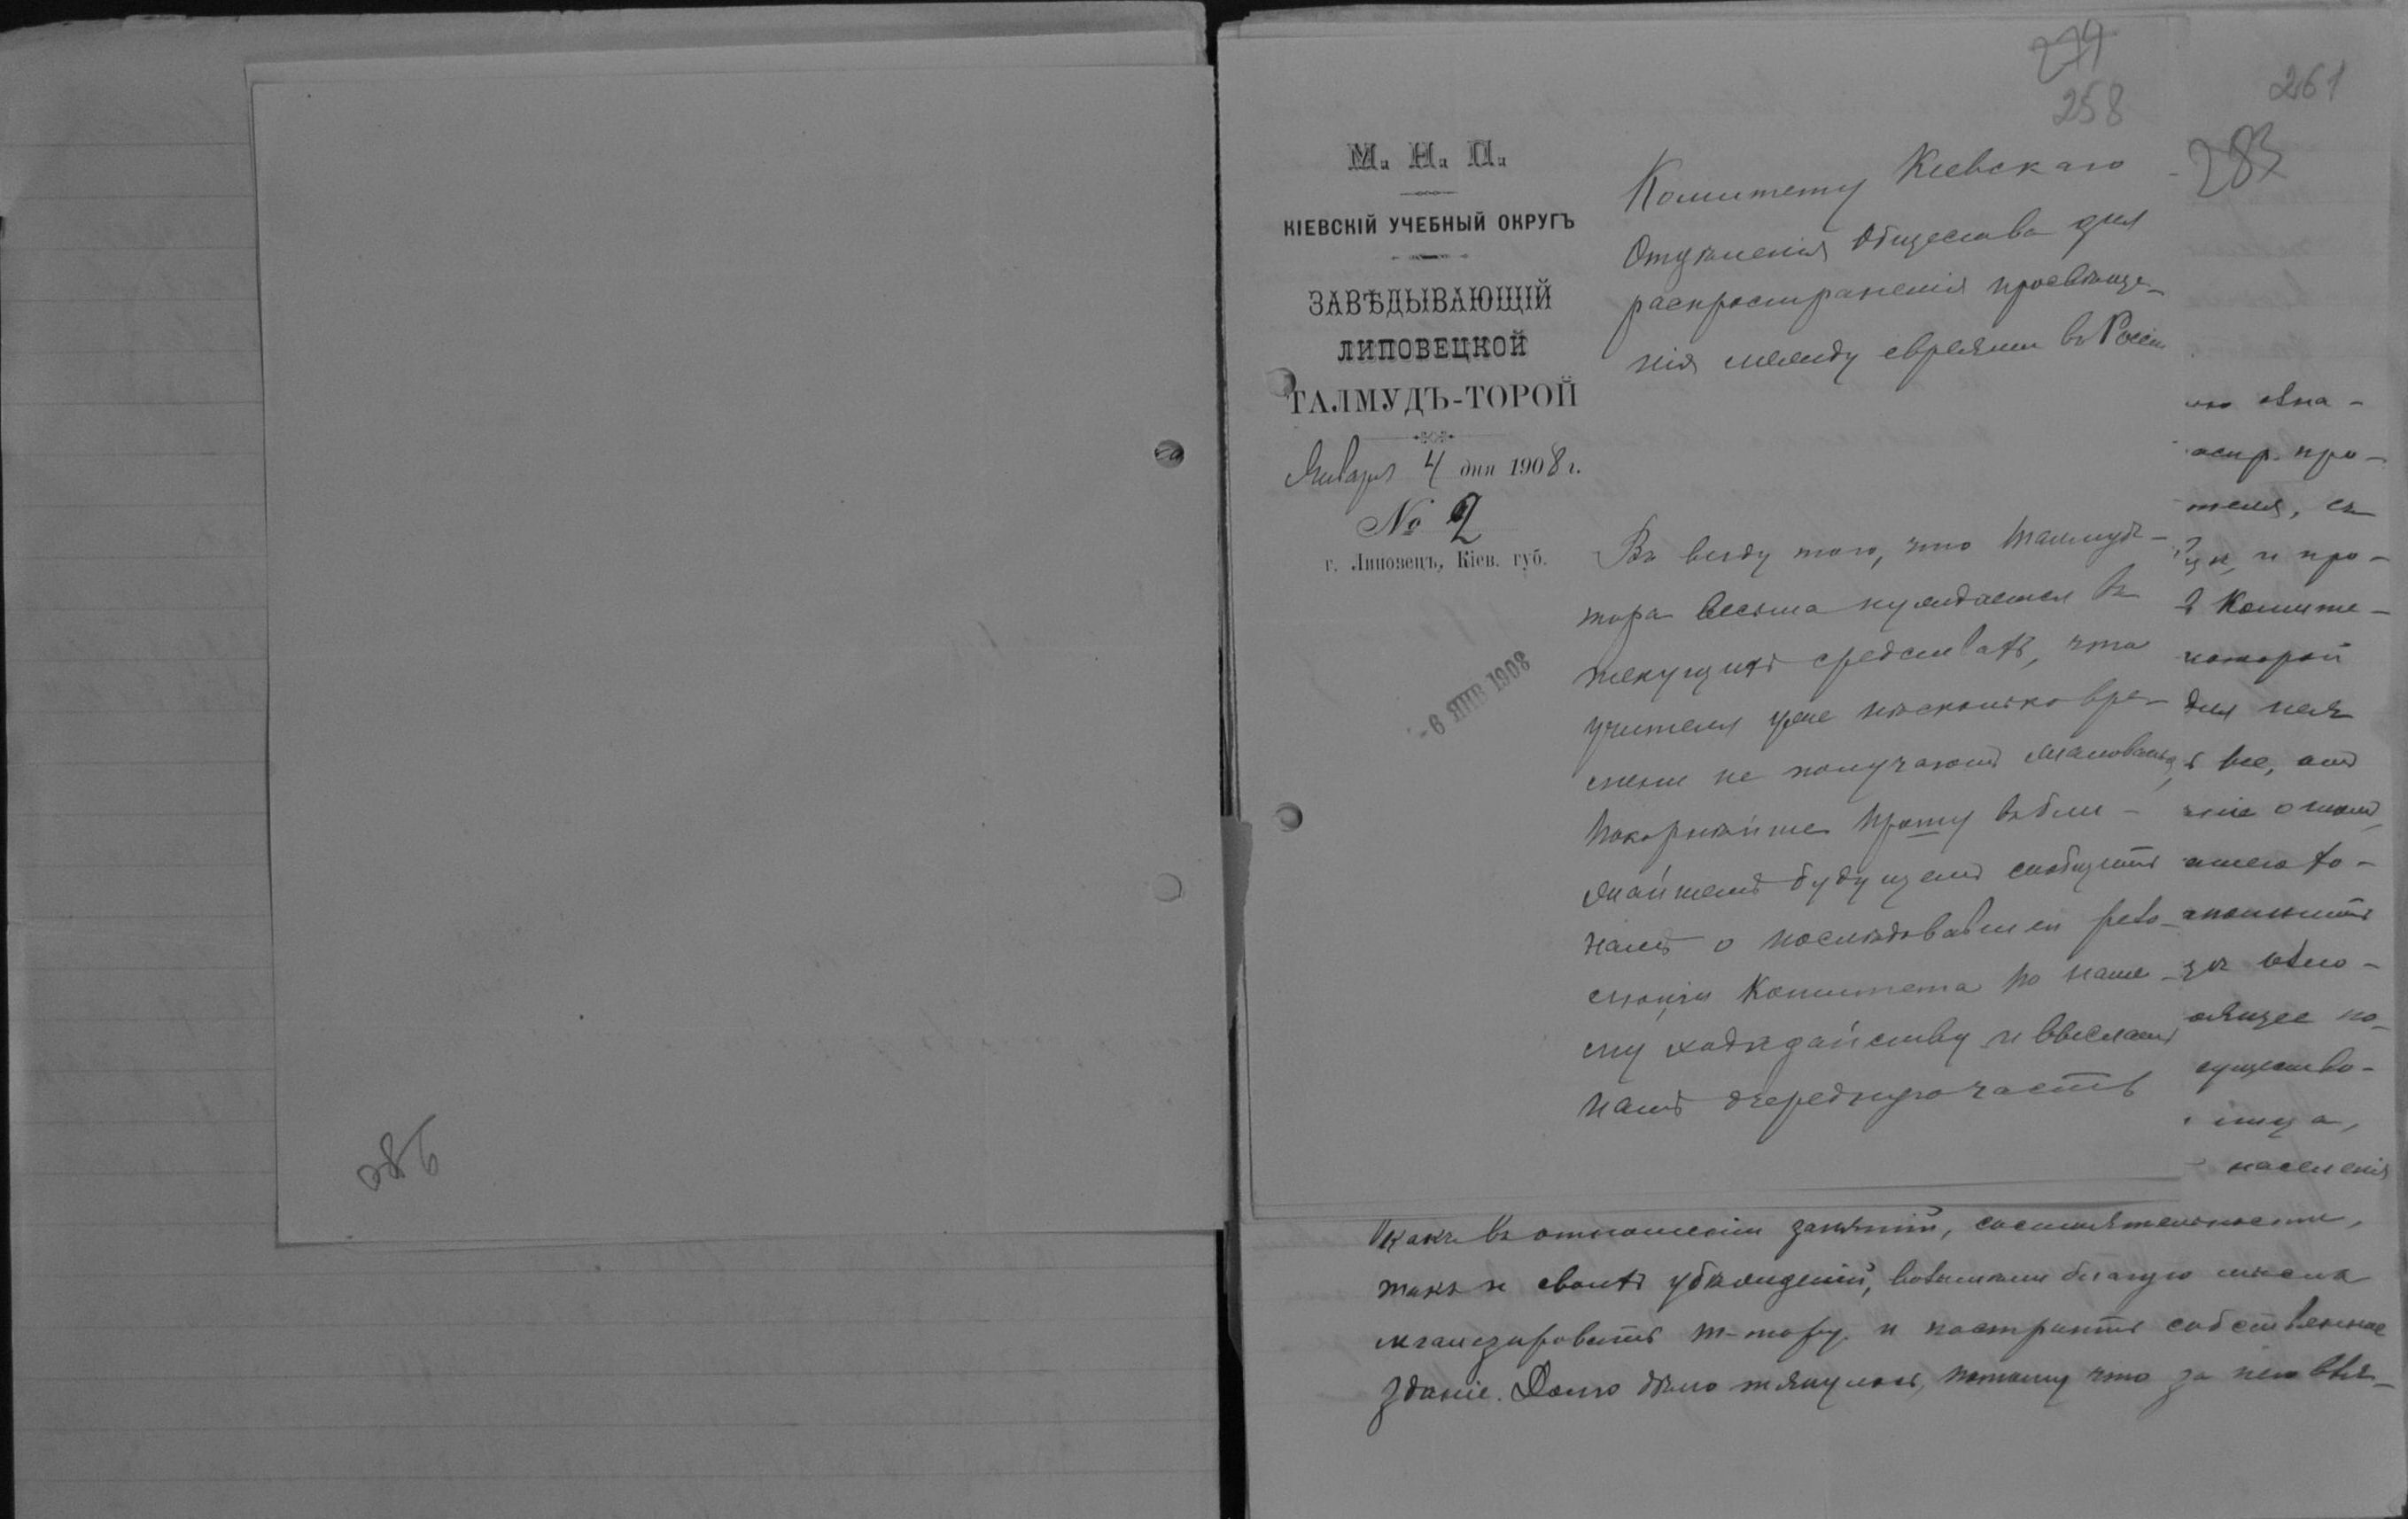 286
274
258
261
283
М. Н. П.
КІЕВСКІЙ УЧЕБНЫЙ ОКРУГЪ
ЗАВѢДЫВАЮЩІЙ
ЛИПОВЕЦКОЙ
ТАЛМУДЪ-ТОРОЙ
Января 4 дня 1908 г.
№ 2
г. Липовецъ, Кіев. губ.
- 6 ЯНВ 1908
Комитету Кіевскаго
Отдѣленія Общества для
распространенія просвѣще-
нія между евреями въ Россіи
Въ виду того, что Талмудъ-
тора весьма нуждается въ
текущихъ средствахъ, что
учителя уже нѣсколько вре-
мени не получаютъ жалованья,
покорнѣйше прошу въ бли-
жайшемъ будущемъ сообщить
намъ о послѣдовавшей резо-
люціи Комитета по наше-
му ходатайству и выслать
намъ очередную часть
аспр. про-
теля, съ
и про-
Комите-
которой
для нея
все, отъ
существо-
населенія
какъ въ отношеніи занятій, состоятельности,
такъ и своихъ убѣжденій, возымѣли благую мысль
легализировать т-тору и построить собственное
зданіе. Долго дѣло тянулось, потому что за него взя-